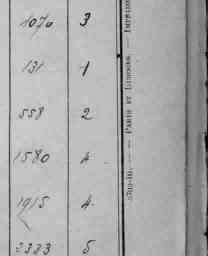 1070 3
131 1
558 2
1580 4
1915 4
3383 5
— PARIS ET LIMOGES. — IMPRIM